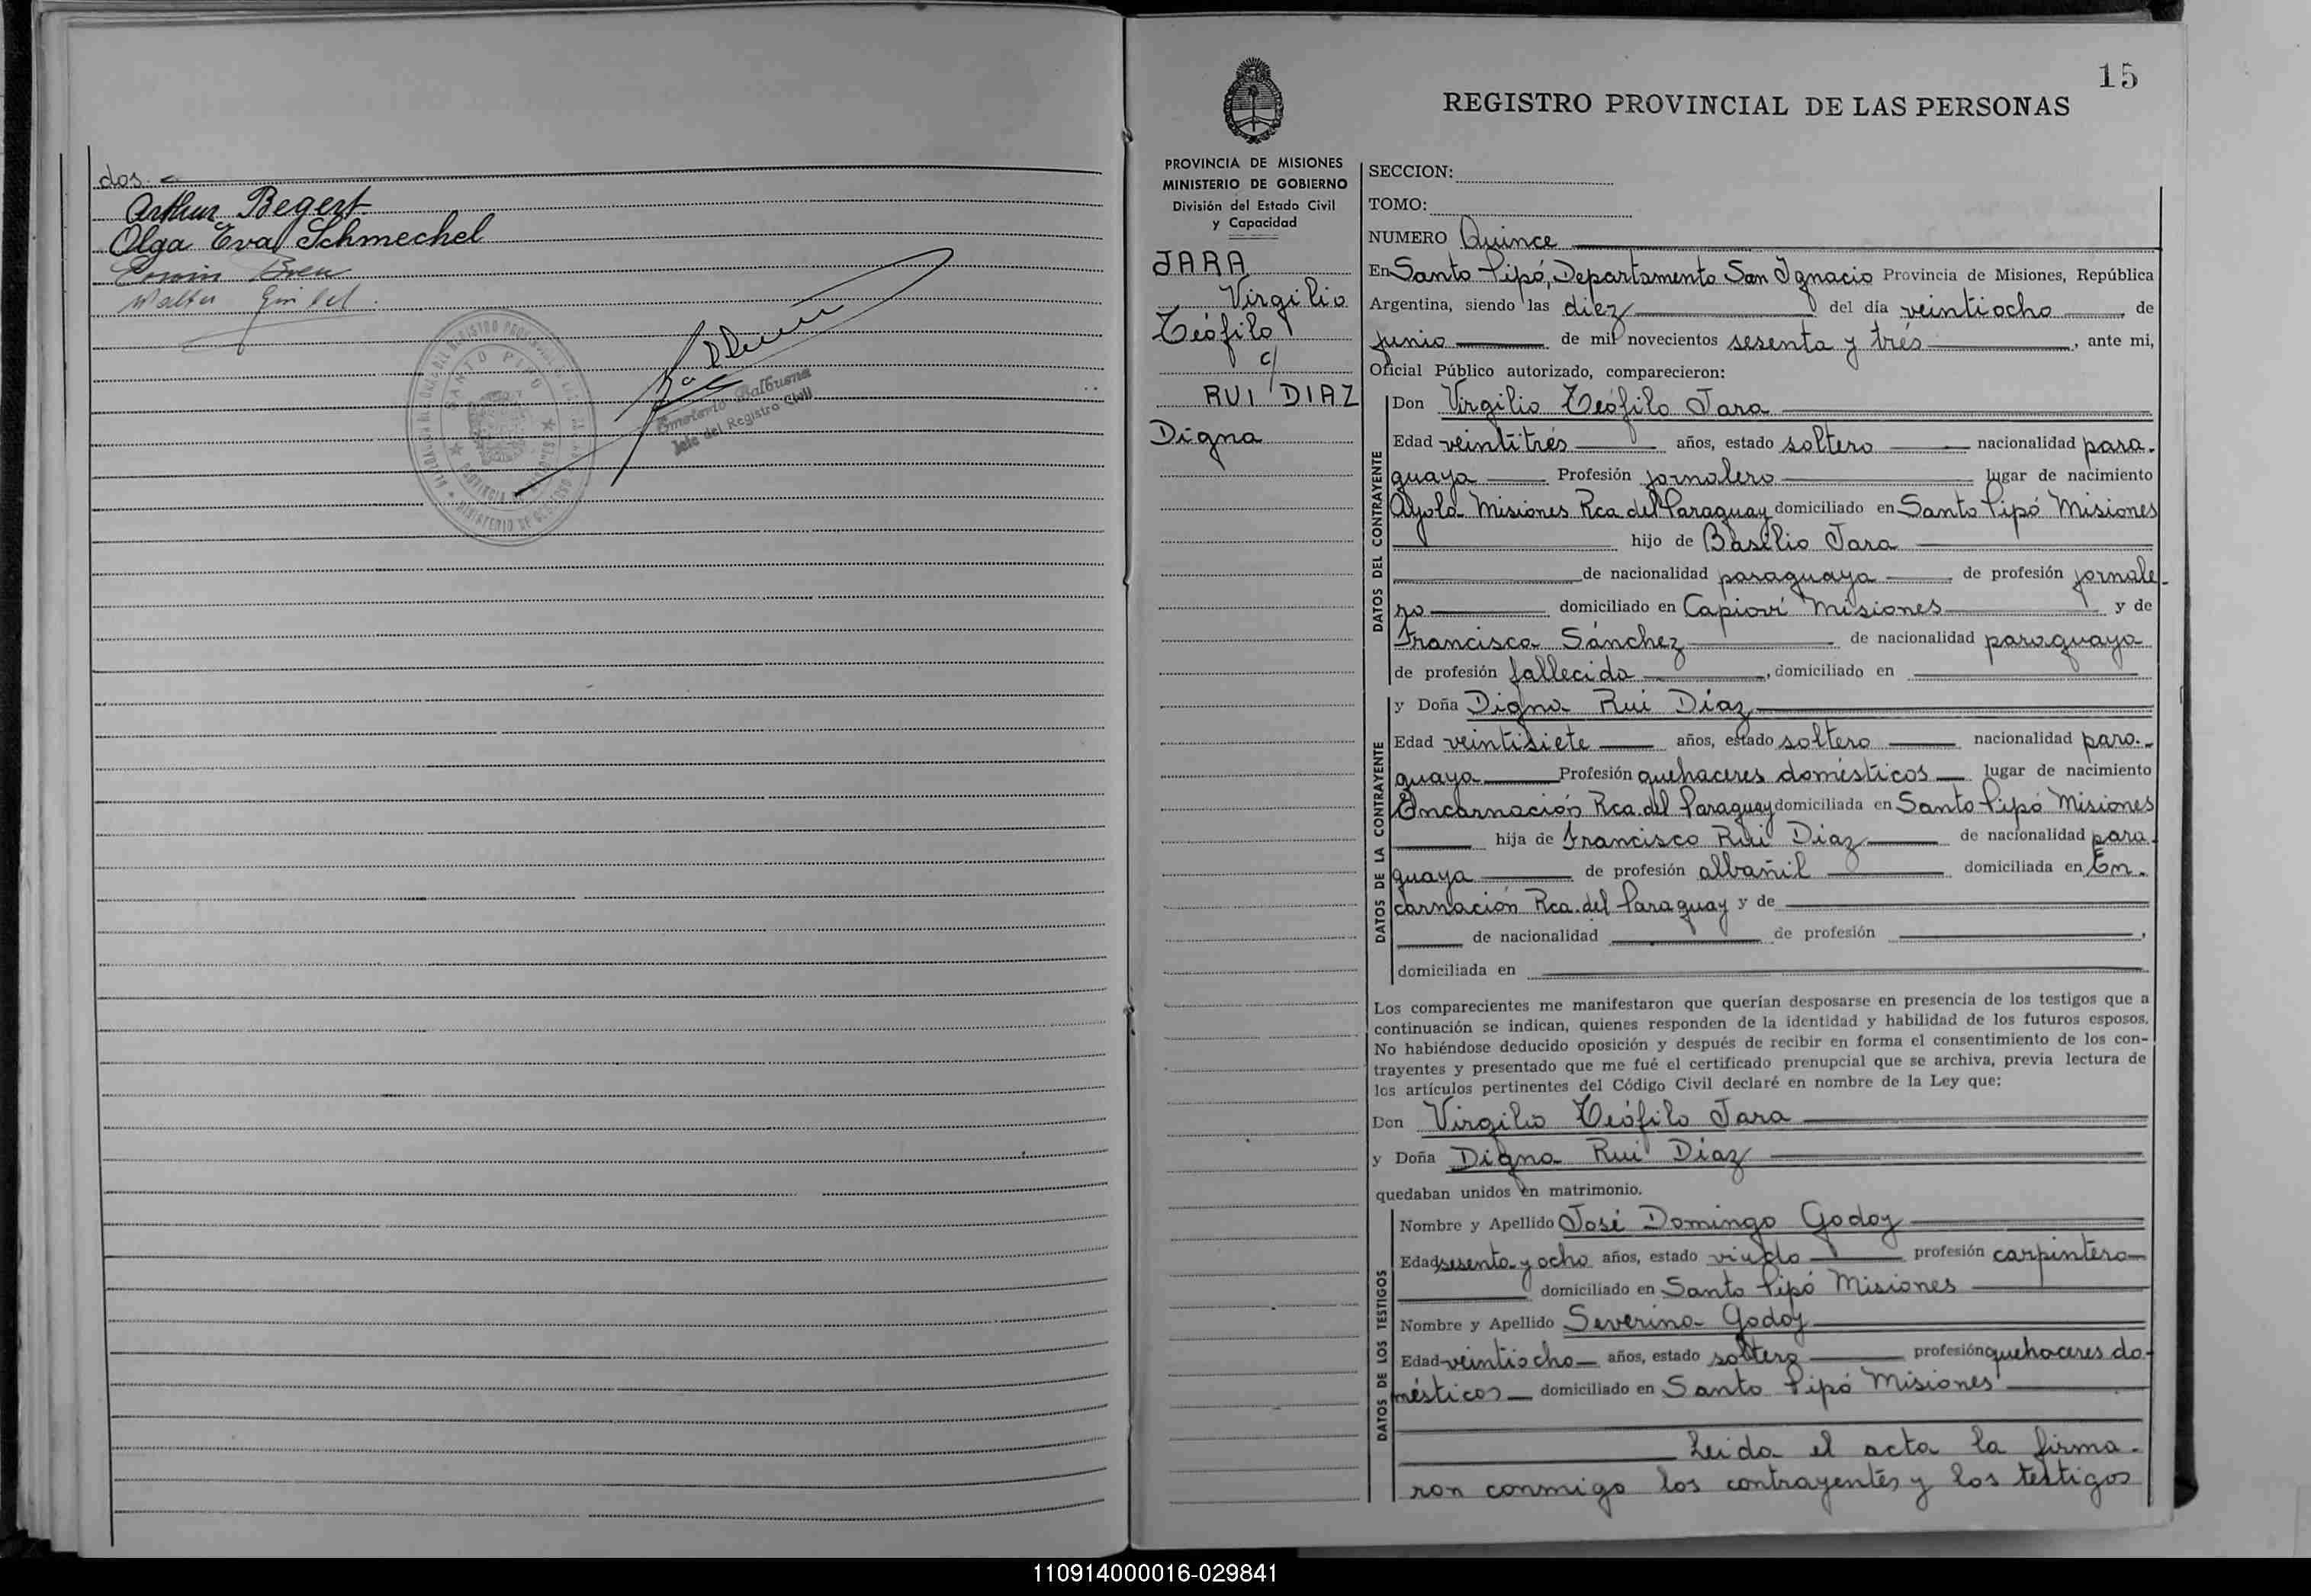 dos.
Arthur Begert
Olga Eva Schmechel
Erwin
Walter
SANTO PIPÓ
Emeterio Balbuena
Jefe del Registro Civil
15
REGISTRO PROVINCIAL DE LAS PERSONAS
PROVINCIA DE MISIONES
MINISTERIO DE GOBIERNO
División del Estado Civil
y Capacidad
JARA
Virgilio
Teófilo
c/
RUI DIAZ
Digna
SECCION:
TOMO:
NUMERO Quince
En Santo Pipó, Departamento San Ignacio Provincia de Misiones, República
Argentina, siendo las diez del día veintiocho de
junio de mil novecientos sesenta y trés, ante mi,
Oficial Público autorizado, comparecieron:
DATOS DEL CONTRAYENTE
Don Virgilio Teófilo Jara
Edad veintitrés años, estado soltero nacionalidad para-
guaya Profesión jornalero lugar de nacimiento
Ayola Misiones Rca del Paraguay domiciliado en Santo Pipó Misiones
hijo de Basilio Jara
de nacionalidad paraguaya de profesión jornale-
ro domiciliado en Capioví Misiones y de
Francisca Sánchez de nacionalidad paraguaya
de profesión fallecida, domiciliado en
DATOS DE LA CONTRAYENTE
y Doña Digna Rui Díaz
Edad veintisiete años, estado soltera nacionalidad para-
guaya Profesión quehaceres domésticos lugar de nacimiento
Encarnación Rca.del Paraguay domiciliada en Santo Pipó Misiones
hija de Francisco Rui Díaz de nacionalidad para-
guaya de profesión albañil domiciliada en En-
carnación Rca.del Paraguay y de
de nacionalidad de profesión ,
domiciliada en
Los comparecientes me manifestaron que querían desposarse en presencia de los testigos que a
continuación se indican, quienes responden de la identidad y habilidad de los futuros esposos.
No habiéndose deducido oposición y después de recibir en forma el consentimiento de los con-
trayentes y presentado que me fué el certificado prenupcial que se archiva, previa lectura de
los artículos pertinentes del Código Civil declaré en nombre de la Ley que:
Don Virgilio Teófilo Jara
y Doña Digna Rui Díaz
quedaban unidos en matrimonio.
DATOS DE LOS TESTIGOS
Nombre y Apellido José Domingo Godoy
Edad sesenta y ocho años, estado viudo profesión carpintero
domiciliado en Santo Pipó Misiones
Nombre y Apellido Severina Godoy
Edad veintiocho años, estado soltera profesión quehaceres do-
mésticos domiciliado en Santo Pipó Misiones
Leida el acta la firma-
ron conmigo los contrayentes y los testigos
110914000016-029841